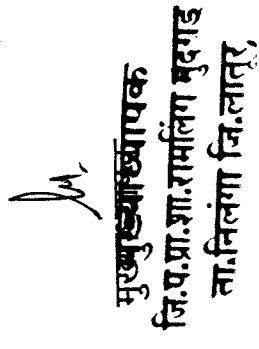 मुख्याध्यापक
जि.प.प्रा.शा.रामलिंग मुदगड
ता.निलंगा जि.लातूर.